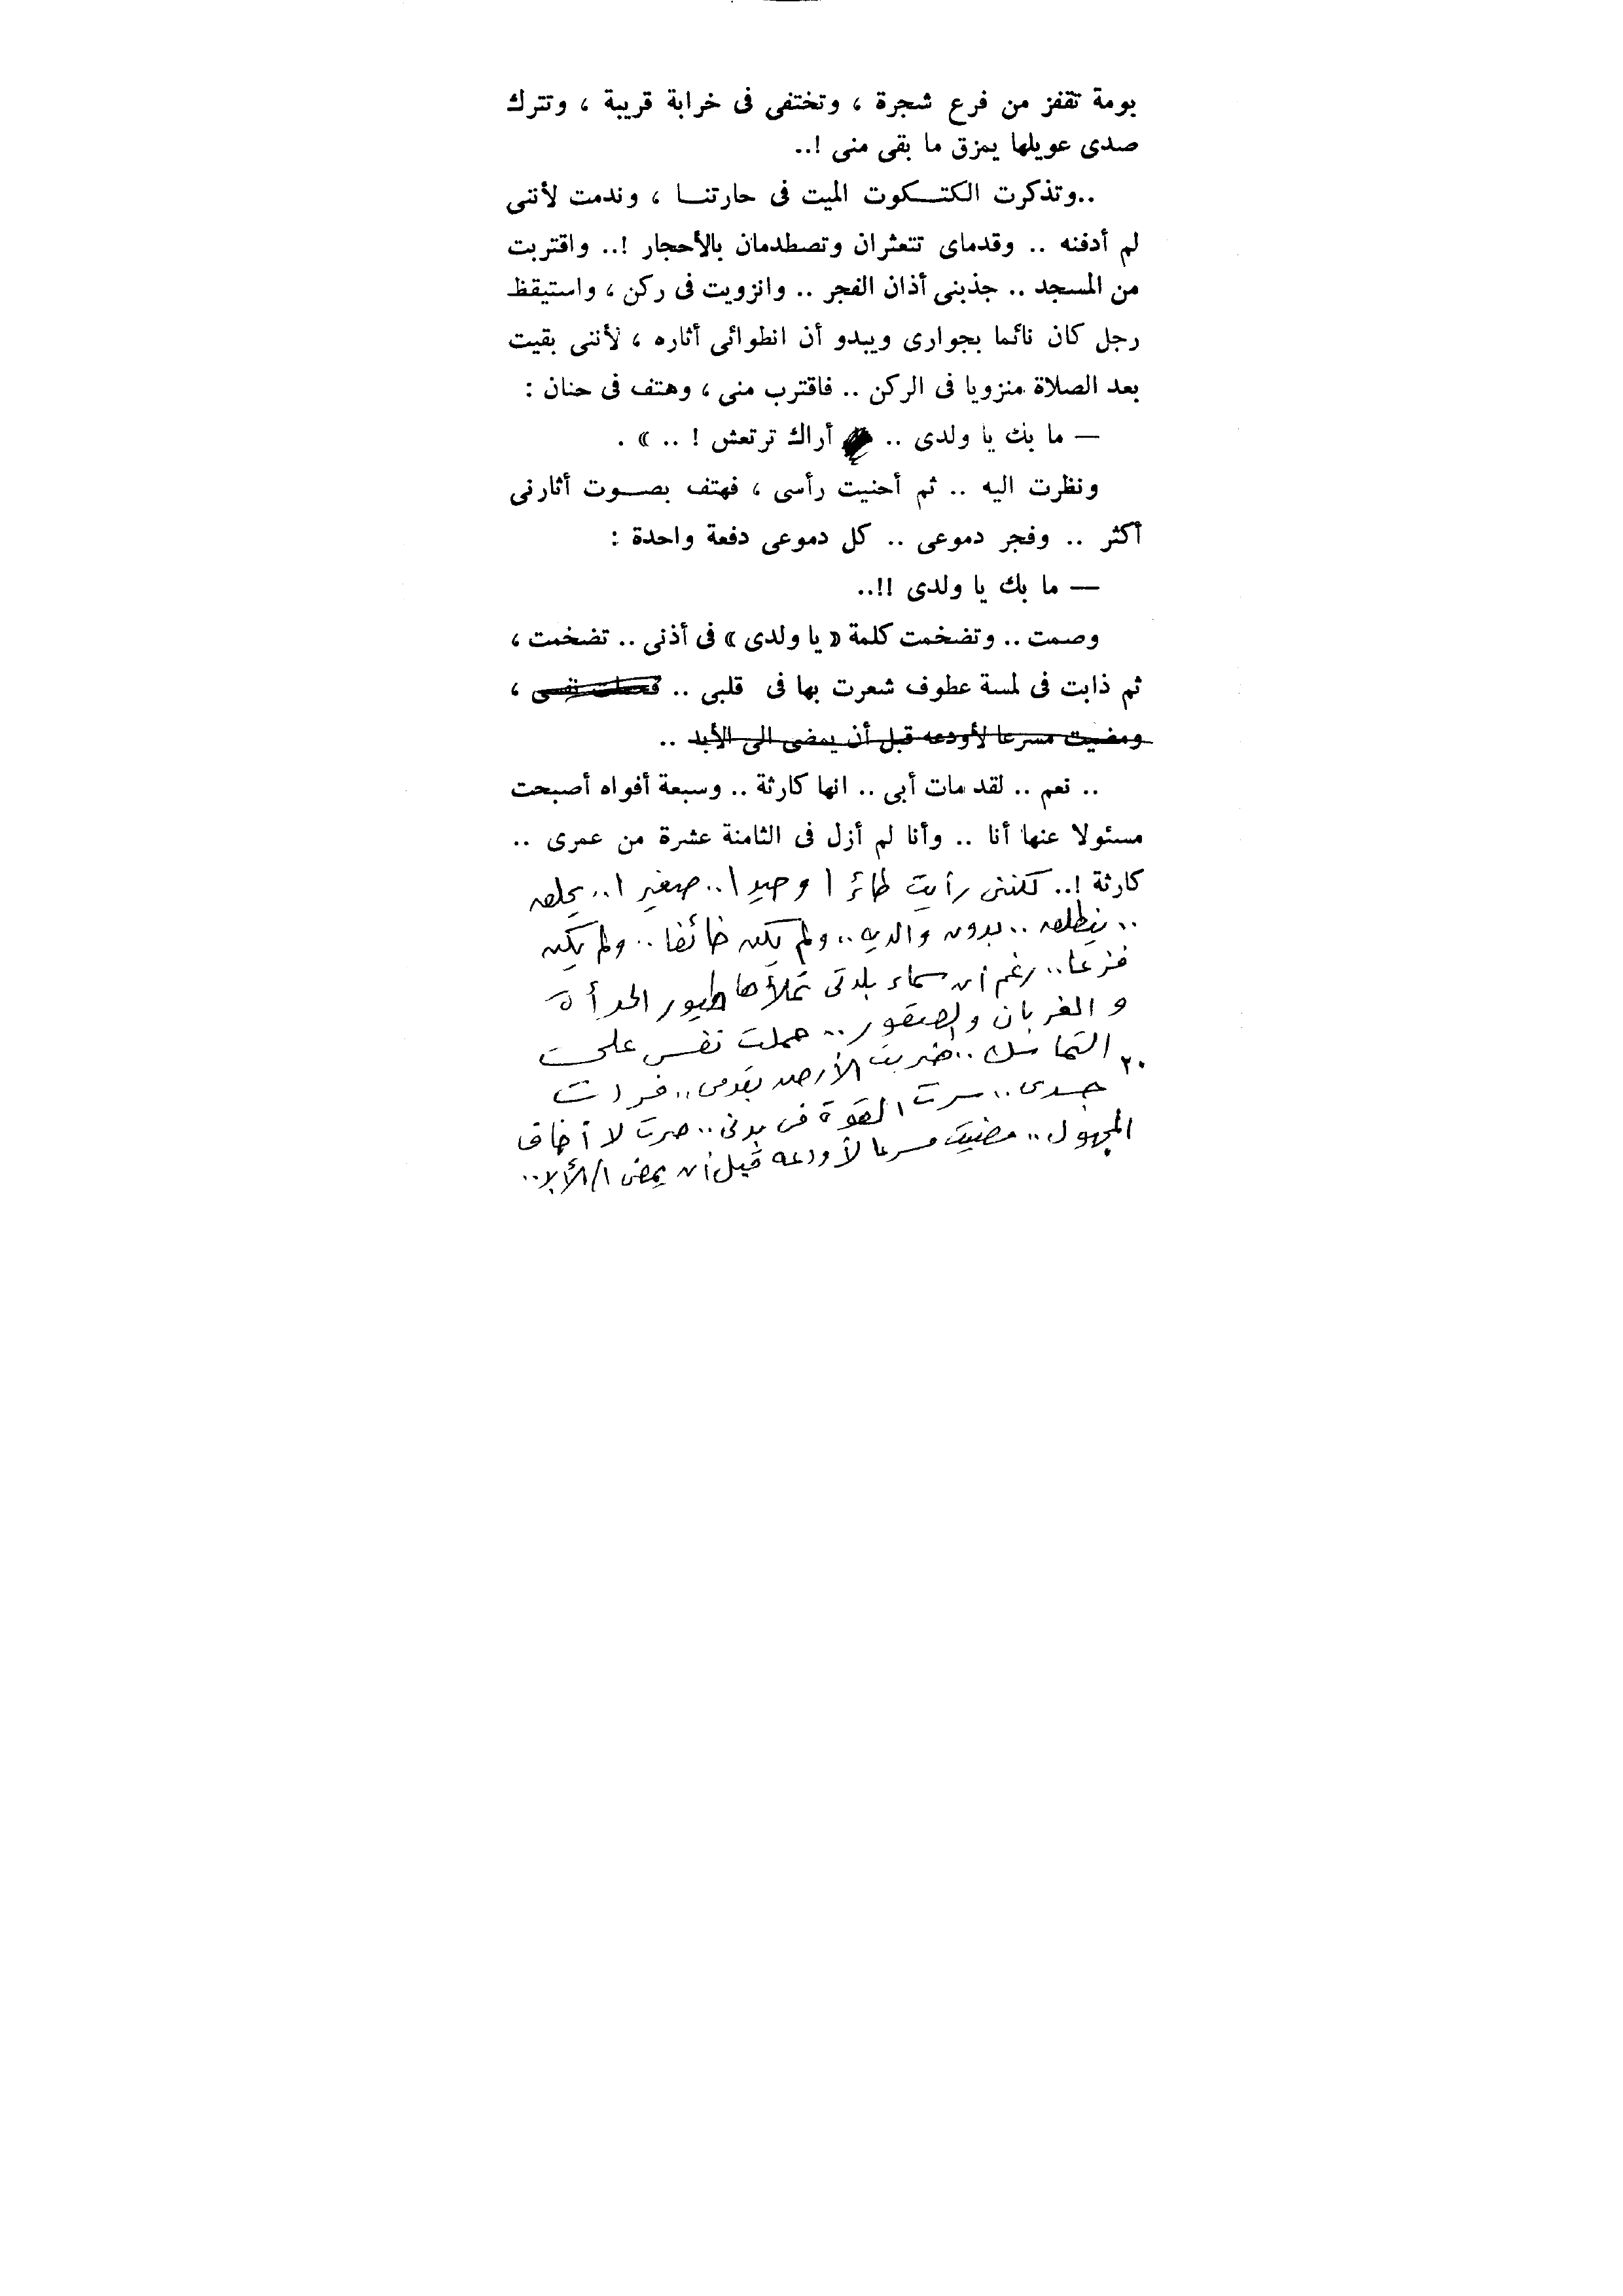 بومة تقفز من فرع شجرة ، وتختفى فى خرابة قريبة ، وتترك
صدى عويلها يمزق ما بقى منى !..
..وتذكرت الكتـكوت الميت فى حارتنـا ، وندمت لأننى
لم أدفنه .. وقدماى تتعثران وتصطدمان بالأحجار !.. واقتربت
من المسجد .. جذبنى أذان الفجر .. وانزويت فى ركن ، واستيقظ
رجل كان نائما بجوارى ويبدو أن انطوائى أثاره ، لأننى بقيت
بعد الصلاة منزويا فى الركن .. فاقترب منى ، وهتف فى حنان :
— ما بك يا ولدى .. أراك ترتعش ! .. » .
ونظرت اليه .. ثم أحنيت رأسى ، فهتف بصـوت أثارنى
أكثر .. وفجر دموعى .. كل دموعى دفعة واحدة :
— ما بك يا ولدى !!..
وصمت .. وتضخمت كلمة « يا ولدى » فى أذنى .. تضخمت ،
ثم ذابت فى لمسة عطوف شعرت بها فى قلبى .. فحملت نفسى ،
ومضيت مسرعا لأودعه قبل أن يمضى الى الأبد ..
.. نعم .. لقد مات أبى .. انها كارثة .. وسبعة أفواه أصبحت
مسئولا عنها أنا .. وأنا لم أزل فى الثامنة عشرة من عمرى ..
كارثة !.. لكننى رأيت طائرا وحيدا .. صغيرا .. يحلق
.. ينطلق .. بدون والديه .. ولم يكن خائفا .. ولم يكن
فزعا .. رغم أن سماء بلدتى تملأها طيور الحدأة
والغربان والصقور .. حملت نفسى على
التماسك .. ضربت الأرض بقدمى ..
٢٠
جسدى .. سرت القوة فى بدنى .. صرت لا أخاف
المجهول .. مضيت مسرعا لأودعه قبل أن يمضى الى الأبد ..